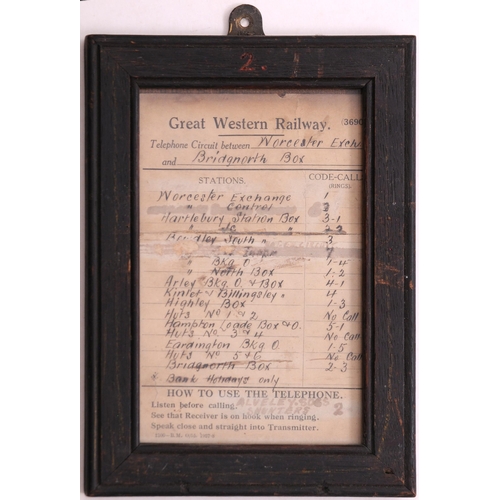 2
Great Western Railway.
(3690
Telephone Circuit between Worcester Exch
and Bridgnorth Box
STATIONS. CODE-CALL
(RINGS).
Worcester Exchange 1
" Control 2
Hartlebury Station Box 3-1
" Jc " 2-2
Bewdley South " 3
" 
" Bkg O. 1-4
" North Box 1-2
Arley Bkg O. & Box 4-1
Kinlet & Billingsley " 4
Highley Box 1-3
Huts No 1 & 2 No Call
Hampton Loade Box & O. 5-1
Huts No 3 & 4 No Call
Eardington Bkg O 1-5
Huts No 5 & 6 No Call
Bridgnorth Box 2-3
* Bank Holidays only
HOW TO USE THE TELEPHONE.
Listen before calling.
See that Receiver is on hook when ringing.
2
Speak close and straight into Transmitter.